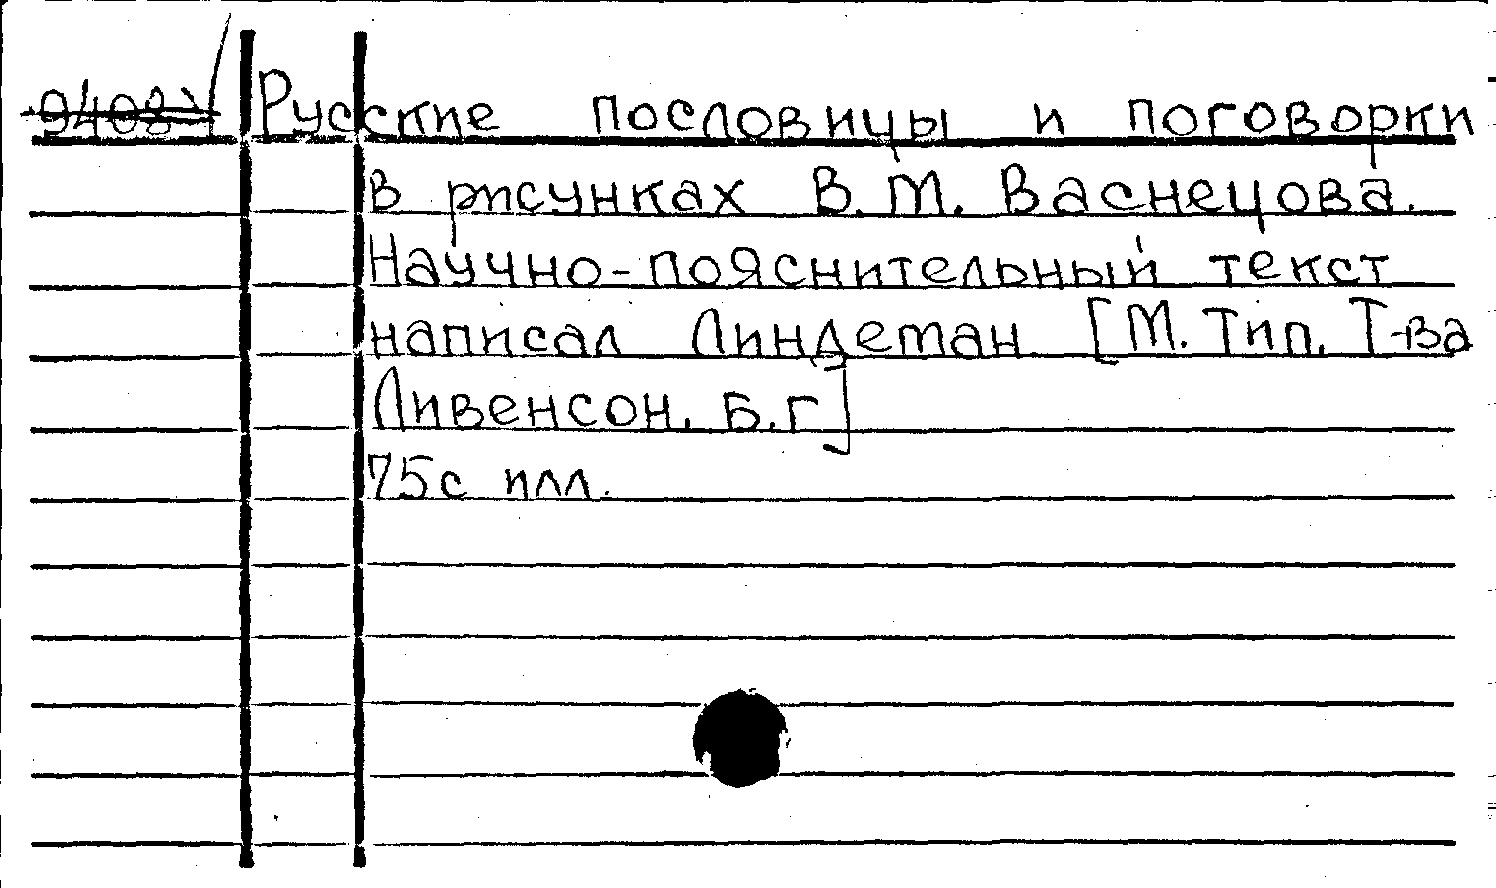 Русские пословицы и поговорки
в рисунках В. М. Васнецова.
Научно-пояснительный текст
написал Линдеман [М. Тип. Т-ва
Ливенсон. Б.г]
75с илл.